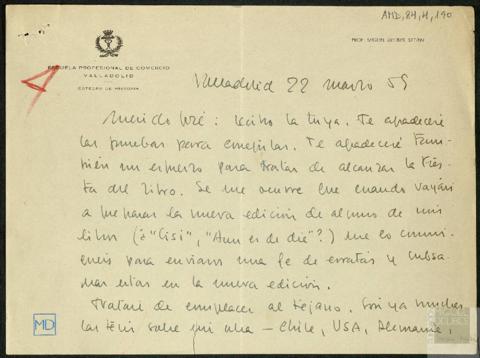 AMD,84,4,190
PROF. MIGUEL DELIBES SETIEN
ESCUELA PROFESIONAL DE COMERCIO
VALLADOLID
CATEDRA DE HISTORIA
Valladolid 22 marzo 69
Querido José: recibo la tuya. Te agradeceré
las pruebas para corregirlas. Te agradeceré tam-
bién un esfuerzo para tratar de alcanzar la
del libro. Se me ocurre que cuando vayáis
a preparar la nueva edición de alguno de mis
libros (¿"Sisí", "Aún es de día"?) me lo comu-
niquéis para enviaros una fe de erratas y subsa-
nar estas en la nueva edición.
Trataré de complacer al tejano. Son ya muchas
las tesis sobre mi obra — Chile, USA, Alemania,
MD